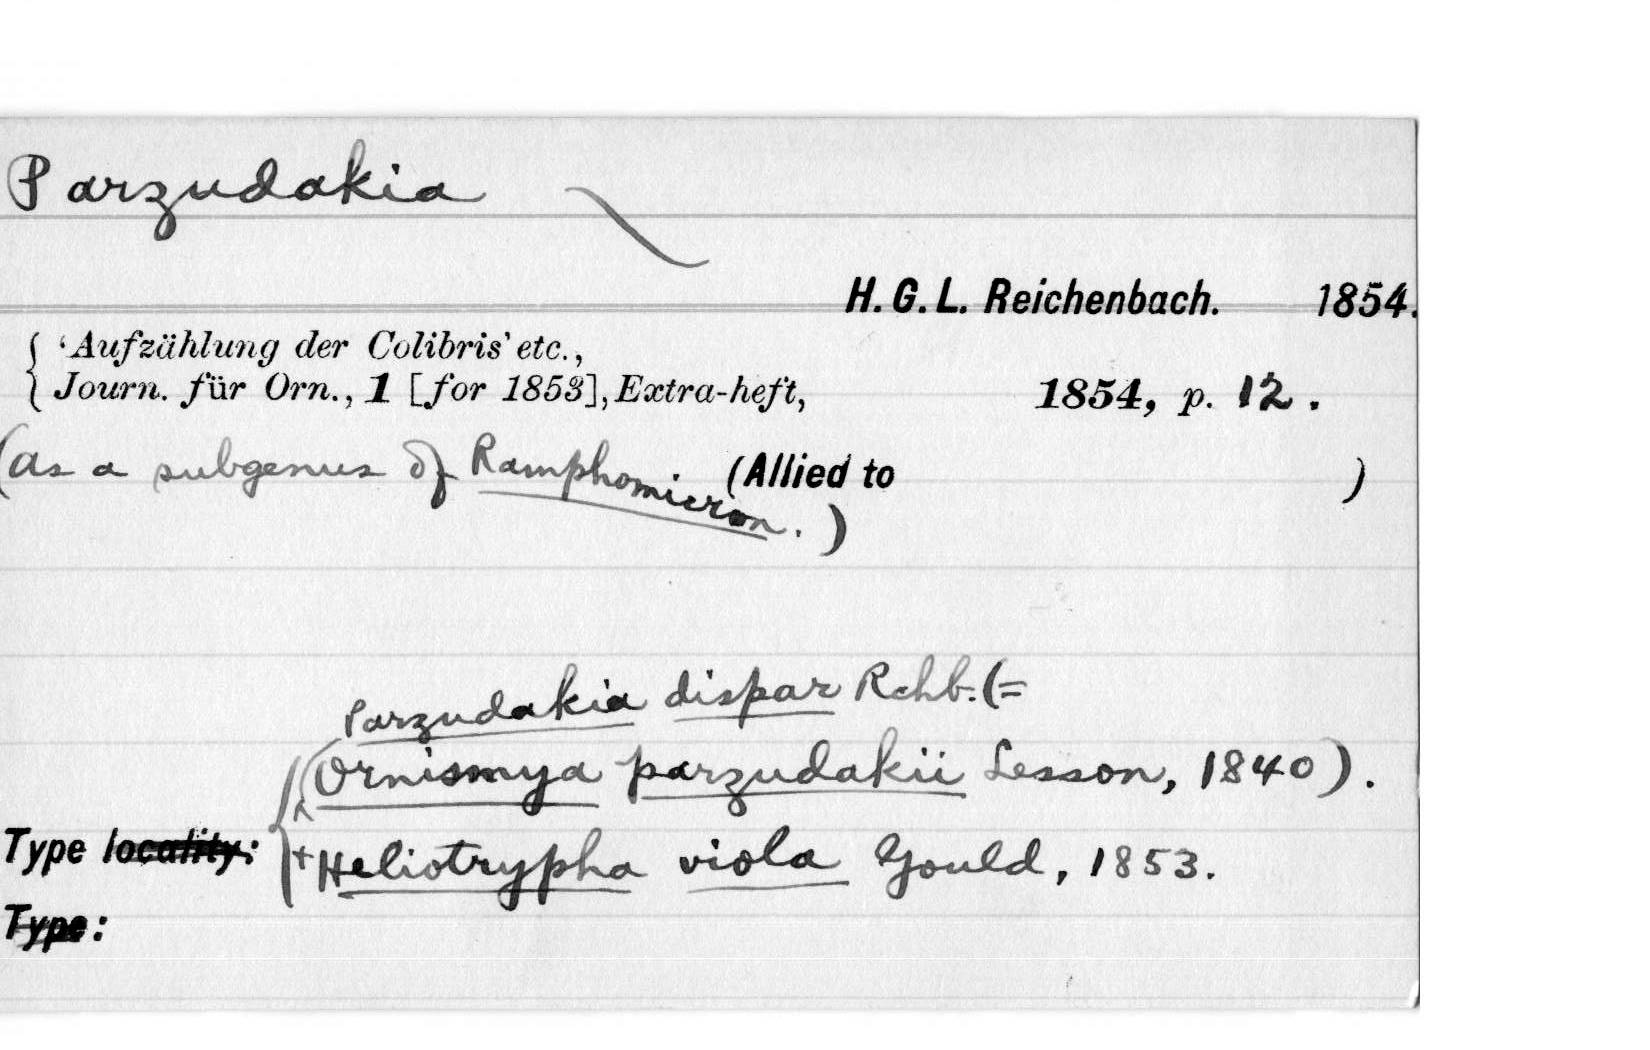 Parzudakia
H. G. L. Reichenbach. 1854.
'Aufzählung der Colibris' etc.,
Journ. für Orn., 1 [for 1853], Extra-heft, 1854, p. 12.
(as a subgenus of Ramphomicron.) (Allied to )
Parzudakia dispar Rchb. (=
(Ornismya parzudakii Lesson, 1840).
Type locality: + Heliotrypha viola Gould, 1853.
Type: